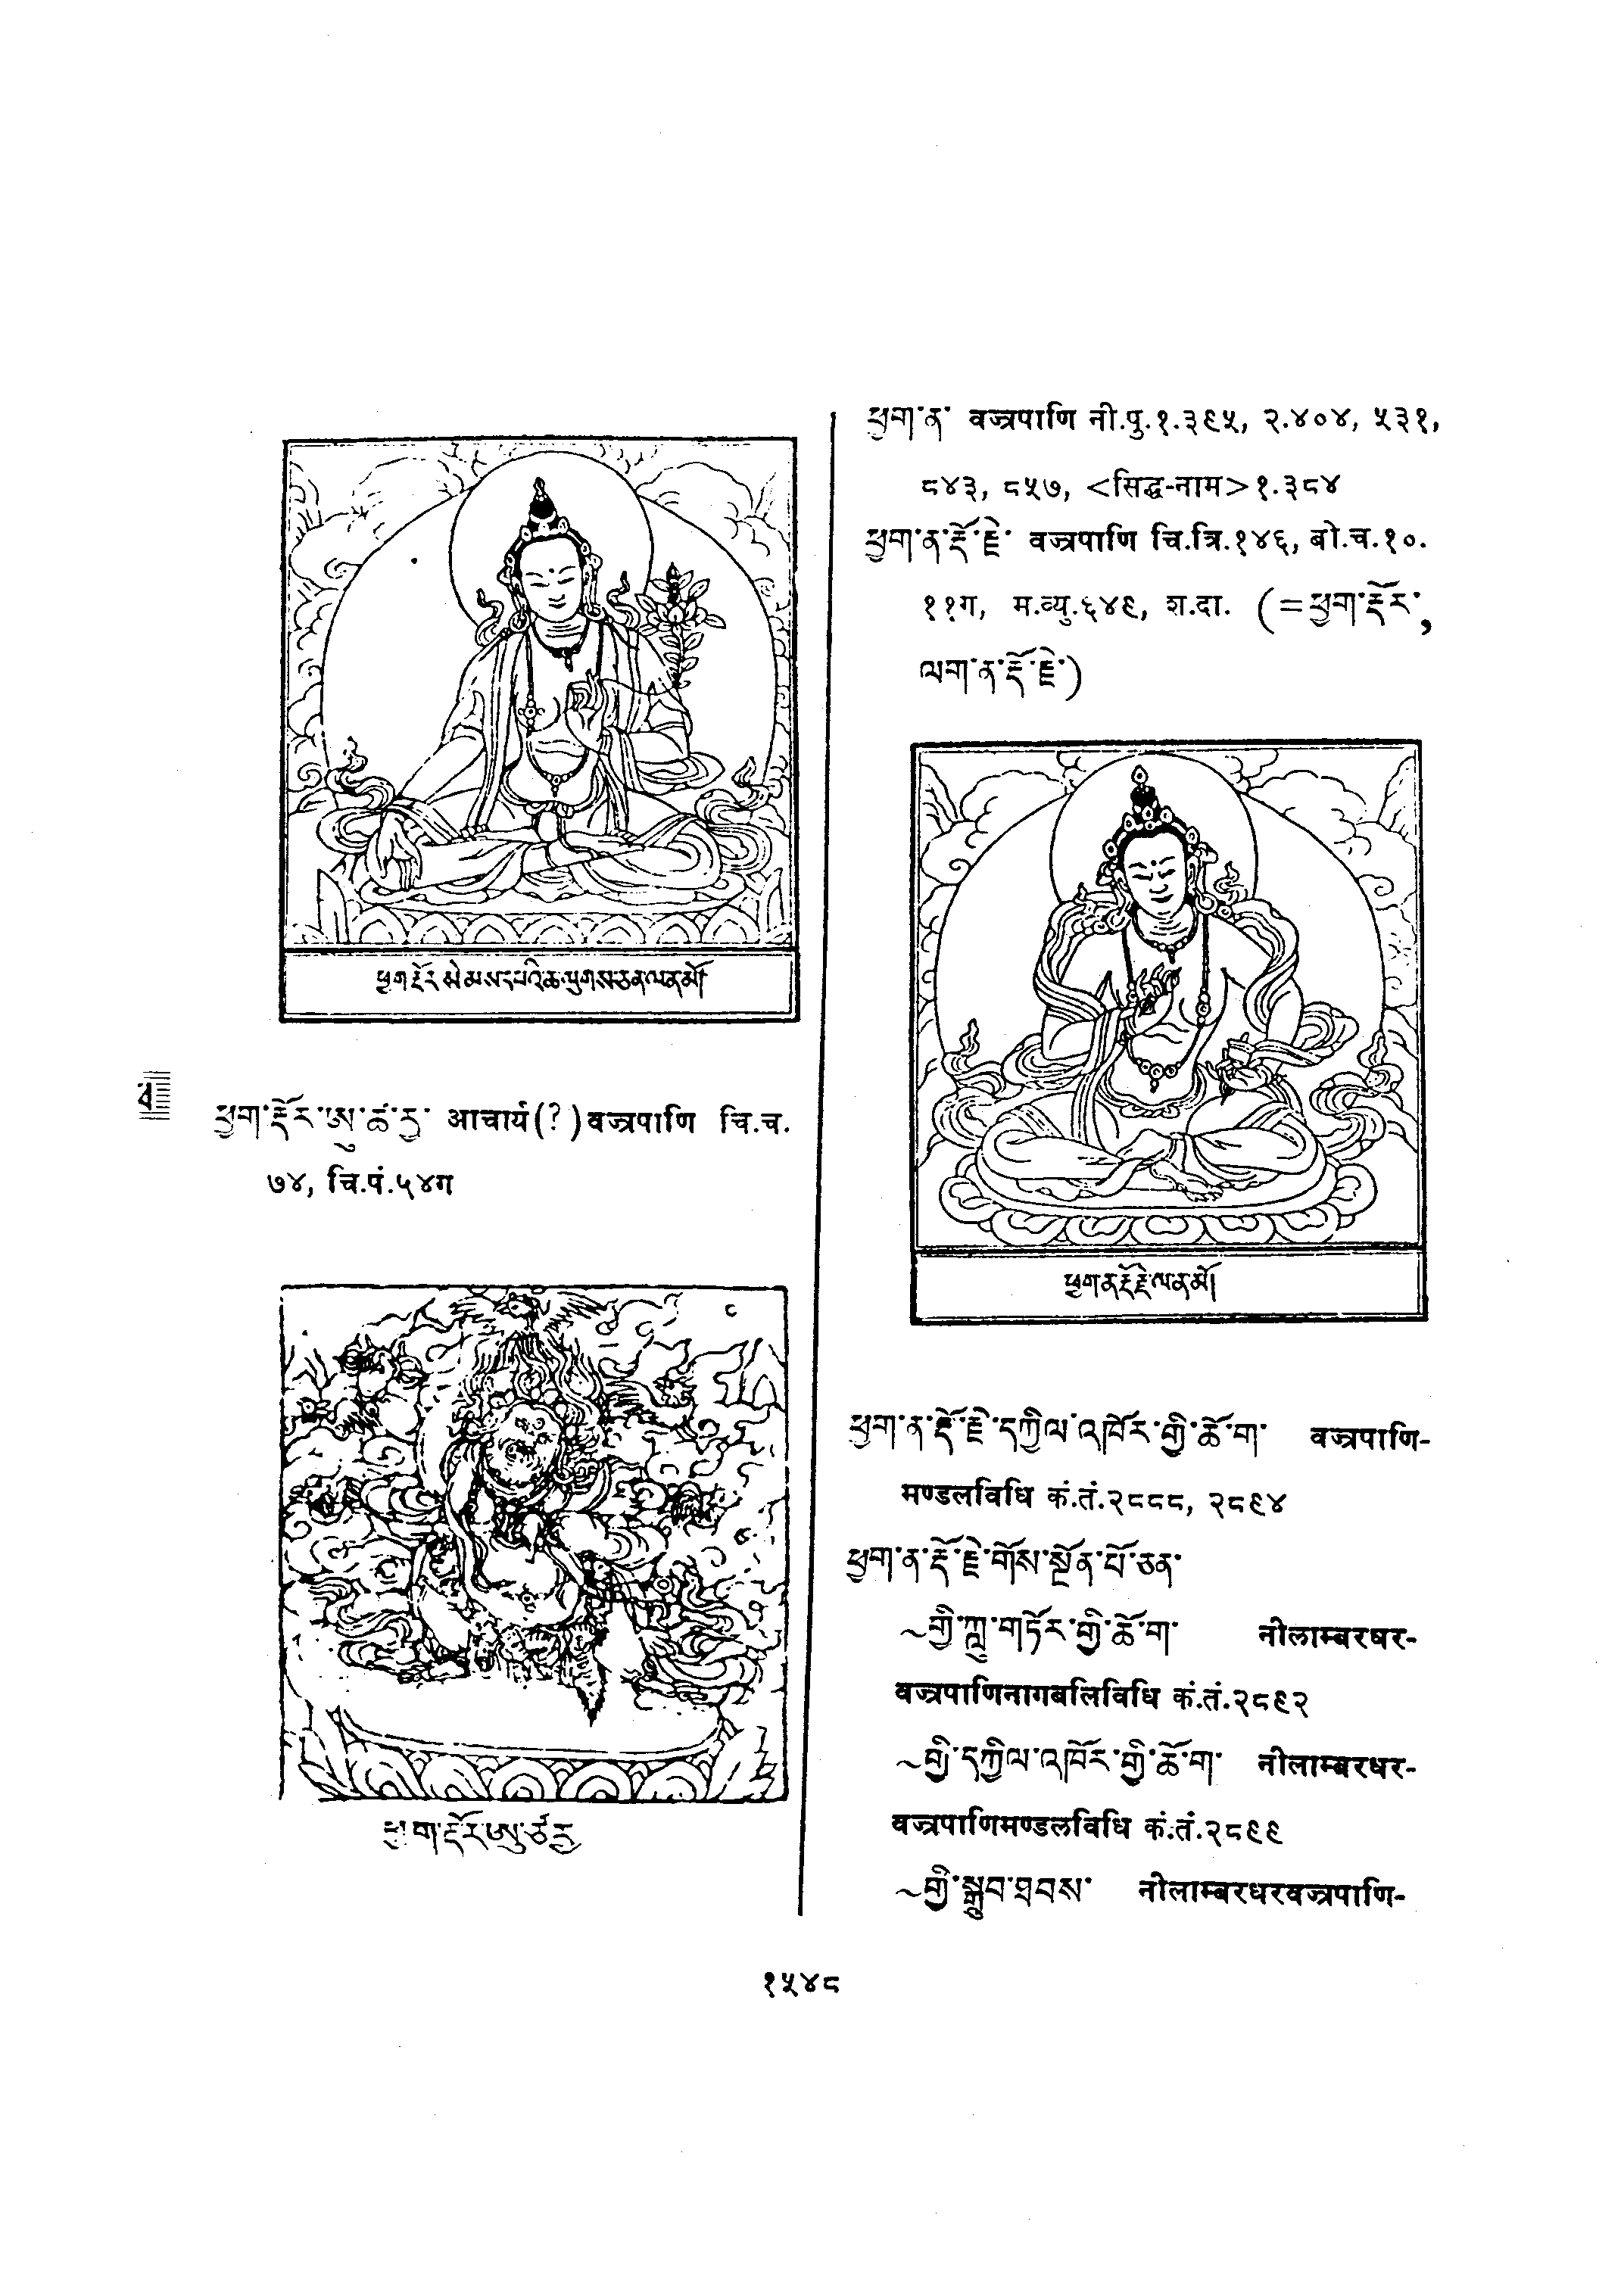 ཕྱག་རྡོར་སེམས་དཔའི་ཆ་ལུགས་ཅན་ལ་ན་མོ།
ཕྱག་རྡོར་ཨུ་ཚཪྱ་ आचार्य(?)वज्रपाणि चि.च.
७४, चि.पं.५४ग
ཕྱག་རྡོར་ཨུ་ཙཪྱ
ཕྱག་ན་ वज्रपाणि नी.पु.१.३९५, २.४०४, ५३१,
८४३, ८५७, <सिद्ध-नाम>१.३८४
ཕྱག་ན་རྡོ་རྗེ་ वज्रपाणि चि.त्रि.१४६, बो.च.१०.
११ग, म.व्यु.६४९, श.दा. (=ཕྱག་རྡོར་,
ལག་ན་རྡོ་རྗེ་)
ཕྱག་ན་རྡོ་རྗེ་ལ་ན་མོ།
ཕྱག་ན་རྡོ་རྗེ་དཀྱིལ་འཁོར་གྱི་ཆོ་ག་ वज्रपाणि-
मण्डलविधि कं.तं.२८८८, २८९४
ཕྱག་ན་རྡོ་རྗེ་གོས་སྔོན་པོ་ཅན་
~གྱི་ཀླུ་གཏོར་གྱི་ཆོ་ག་ नीलाम्बरधर-
वज्रपाणिनागबलिविधि कं.तं.२८९२
~གྱི་དཀྱིལ་འཁོར་གྱི་ཆོ་ག་ नीलाम्बरधर-
वज्रपाणिमण्डलविधि कं.तं.२८९९
~གྱི་སྒྲུབ་ཐབས་ नीलाम्बरधरवज्रपाणि-
१५४८